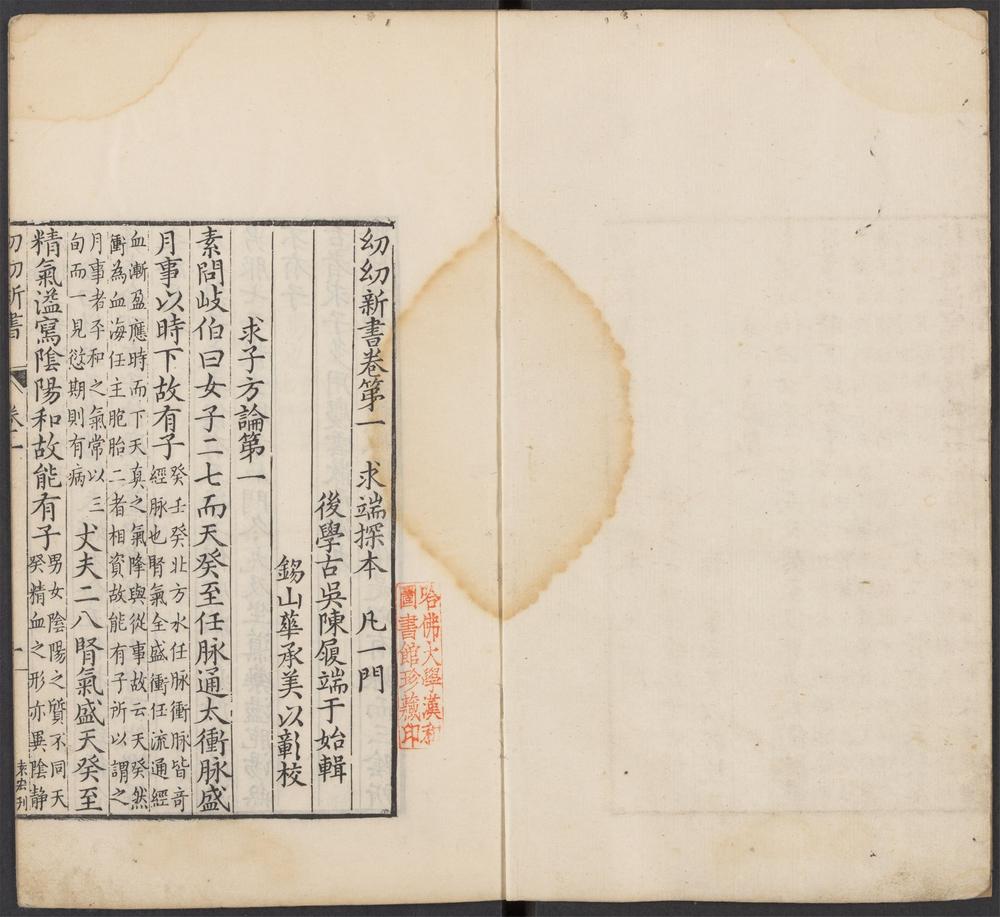 哈佛大學漢和
圖書館珍藏印
幼幼新書卷第一　求端探本　凡一門
後學古吳陳履端于始輯
錫山華承美以彰校
求子方論第一
素問岐伯曰女子二七而天癸至任脉通太衝脉盛
月事以時下故有子
癸壬癸北方水任脉衝脉皆竒
經脉也腎氣全盛衝任流通經
血漸盈應時而下天真之氣降與從事故云天癸然
衝為血海任主胞胎二者相資故能有子所以謂之
月事者平和之氣常以三
旬而一見愆期則有病
丈夫二八腎氣盛天癸至
精氣溢寫陰陽和故能有子
男女陰陽之質不同天
癸精血之形亦異陰静
幼幼新書　卷一　一